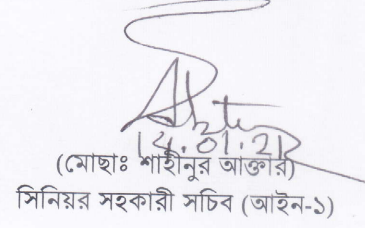 14.01.21
(মোছাঃ শাহীনুর আক্তার)
সিনিয়র সহকারী সচিব (আইন-১)